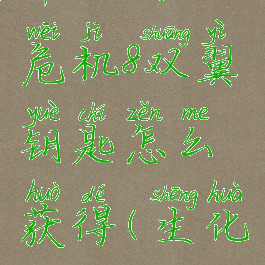 wēi jī shuāng yì
危机8双翼
yuè chí zěn me
钥匙怎么
huò dé shēng huà
获得(生化